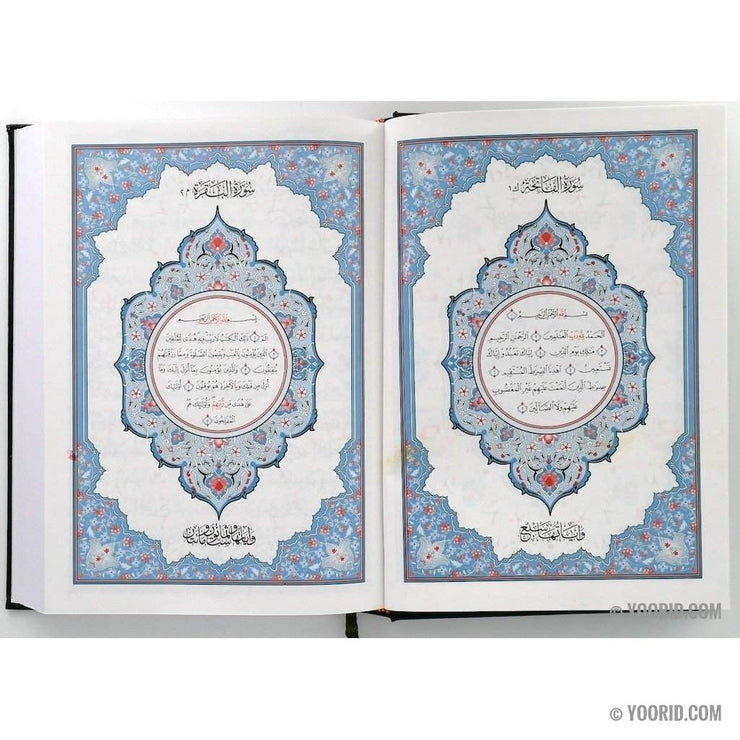 سورة الفاتحة ك ١
بسم الله الرحمن الرحيم
الحمد لله رب العلمين الرحمن الرحيم
ملك يوم الدين إياك نعبد وإياك
نستعين اهدنا الصرط المستقيم
صرط الذين أنعمت عليهم غير المغضوب
عليهم ولا الضالين
وآياتها سبع
سورة البقرة م ٢
بسم الله الرحمن الرحيم
الم ذلك الكتب لا ريب فيه هدى للمتقين
الذين يؤمنون بالغيب ويقيمون الصلوة ومما رزقنهم
ينفقون والذين يؤمنون بما أنزل إليك وما
أنزل من قبلك وبالآخرة هم يوقنون أولئك
على هدى من ربهم وأولئك هم
المفلحون
وآياتها ست وثمانون ومائتان
© YOORID.COM
© YOORID.COM